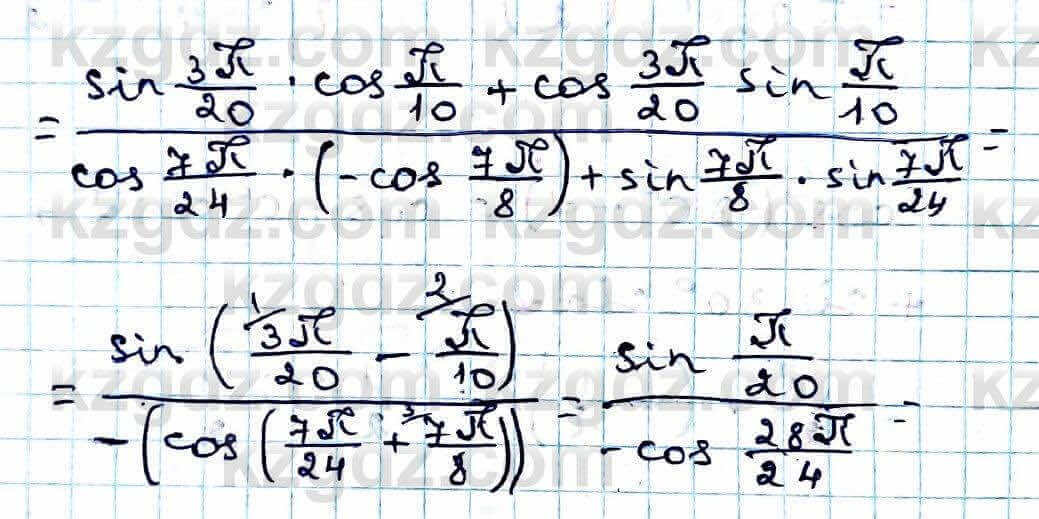 = (sin 3π/20 · cos π/10 + cos 3π/20 sin π/10) / (cos 7π/24 · (-cos 7π/8) + sin 7π/8 · sin 7π/24) =
= sin (¹⁄3π/20 - ²⁄π/10) / -(cos (7π/24 + ³⁄7π/8)) = sin π/20 / -cos 28π/24 =
kzgdz.com